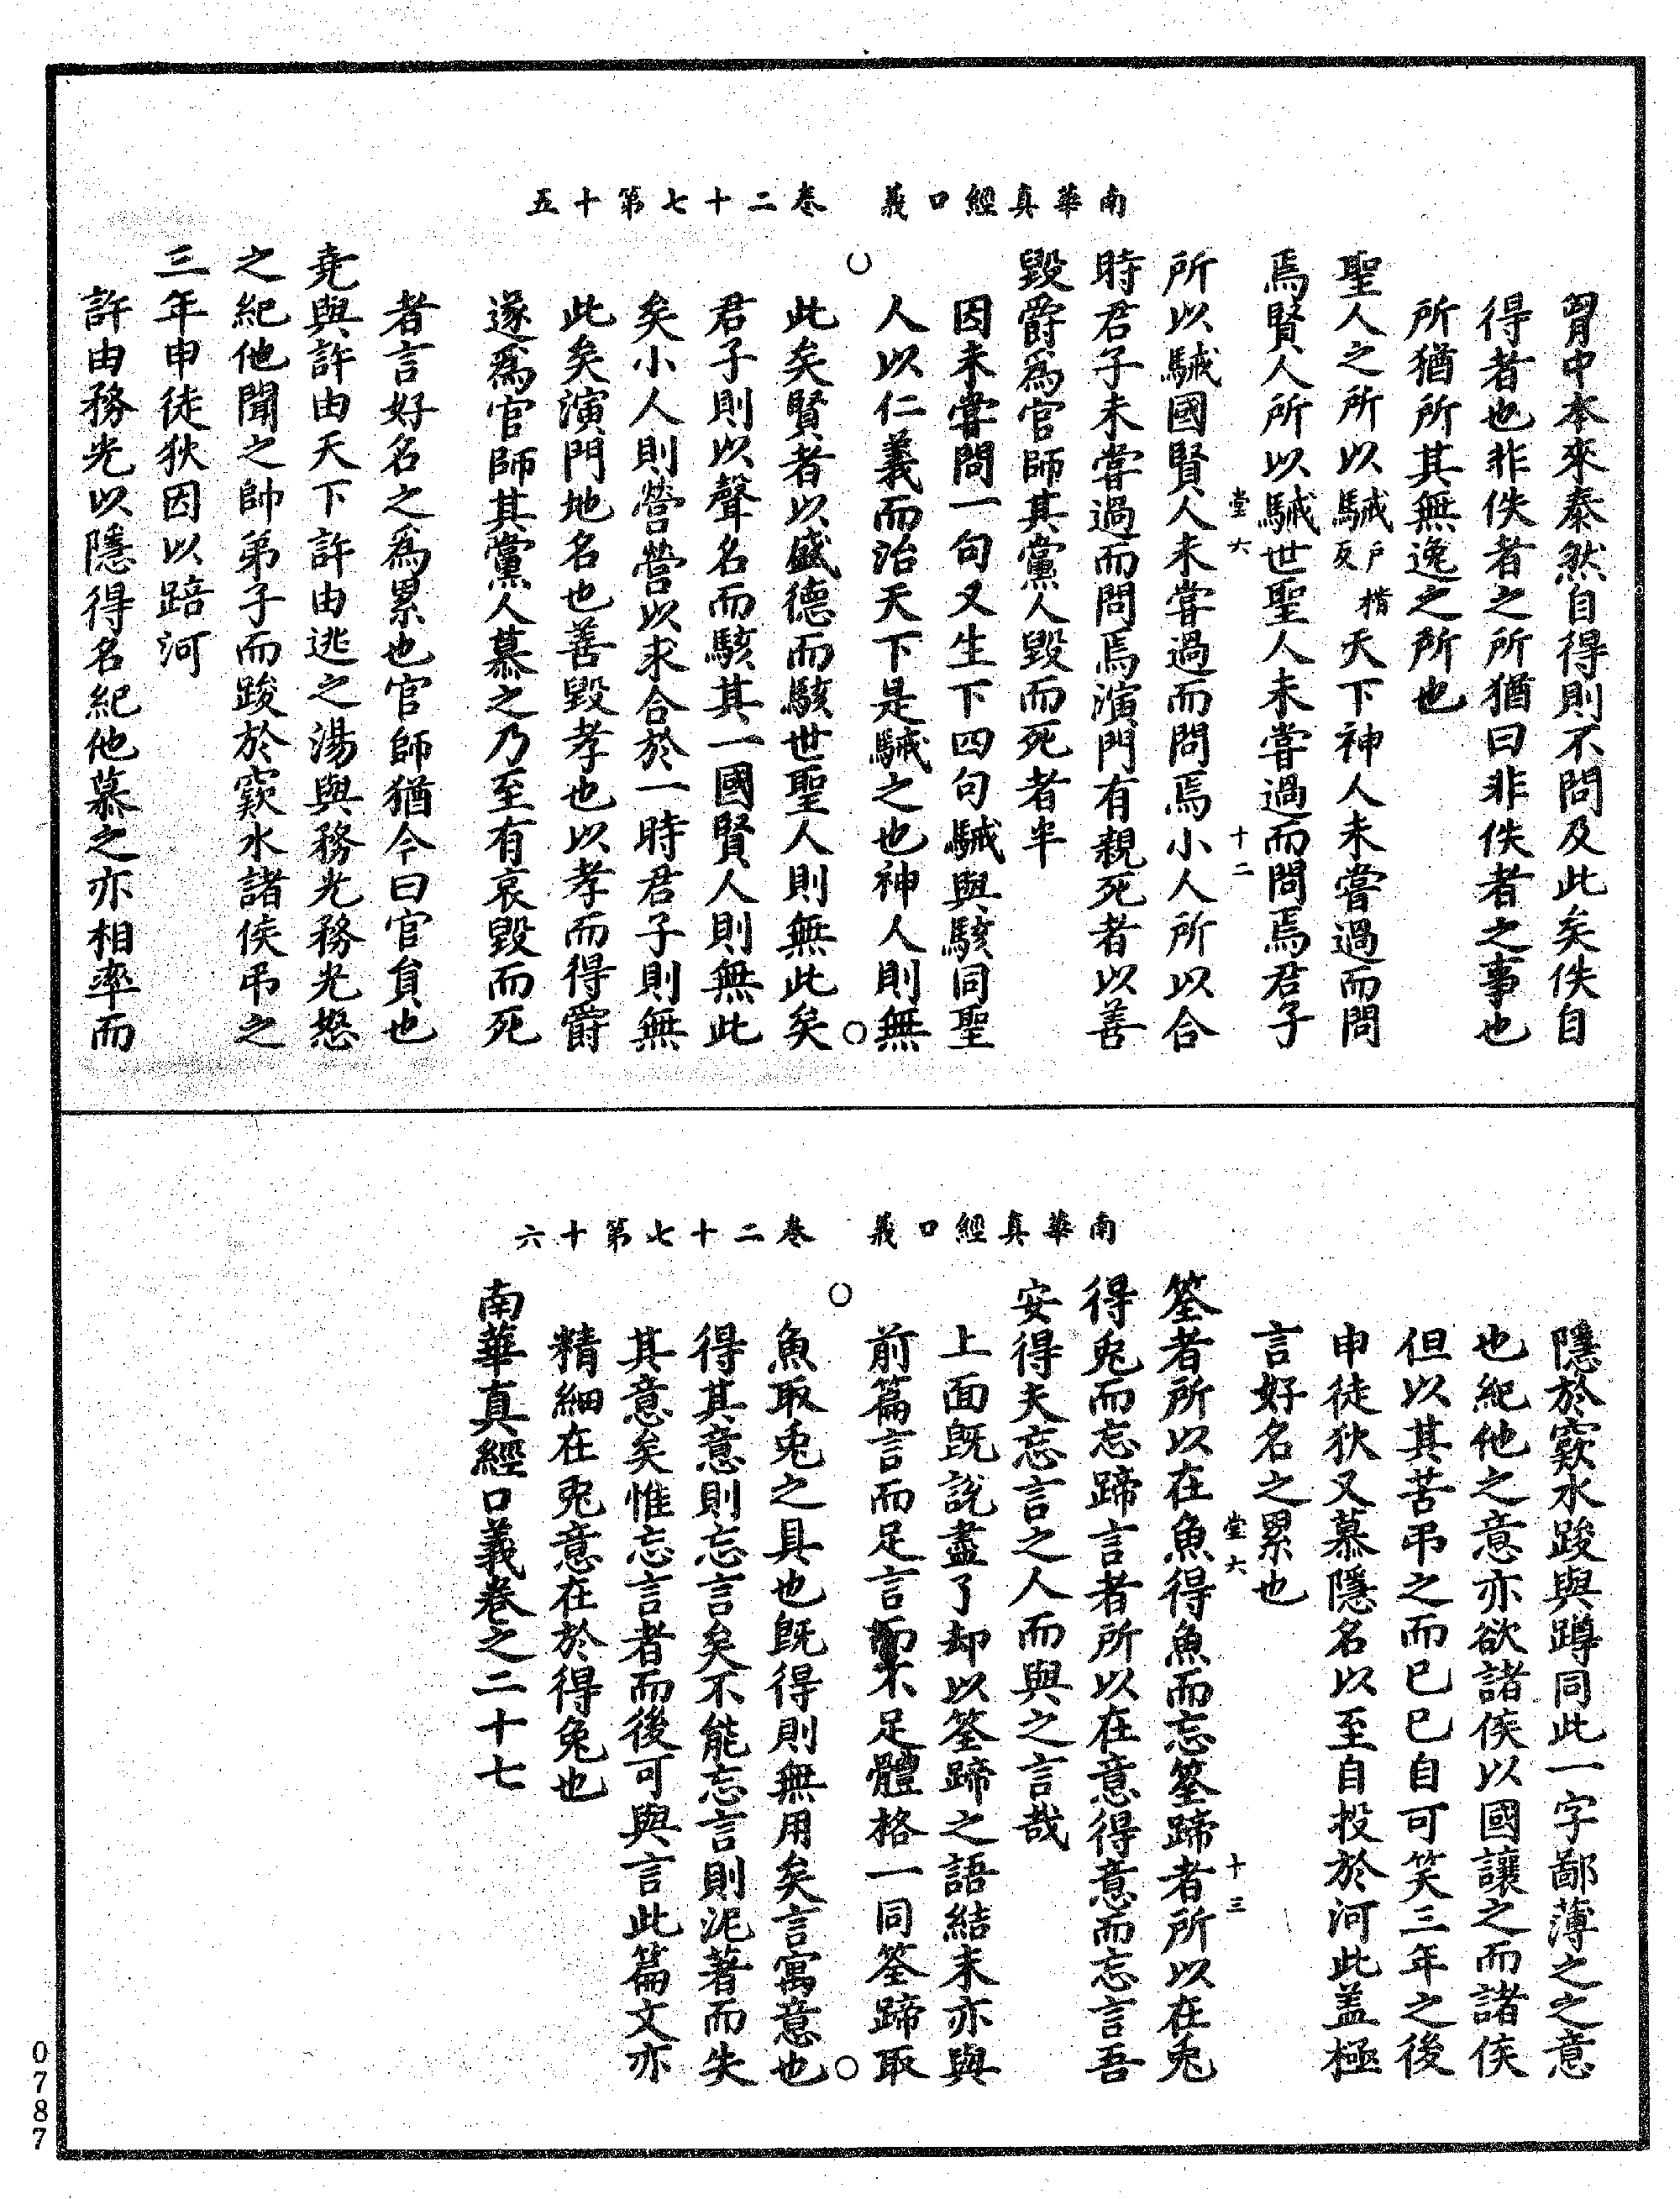 南華真經口義　卷二十七第十五
胷中本來泰然自得則不問及此矣佚自
得者也非佚者之所猶曰非佚者之事也
所猶所其無逸之所也
聖人之所以駴戶楷反天下神人未嘗過而問
焉賢人所以駴世聖人未嘗過而問焉君子
堂六　十二
所以駴國賢人未嘗過而問焉小人所以合
時君子未嘗過而問焉演門有親死者以善
毀爵爲官師其黨人毀而死者半
因未嘗問一句又生下四句駴與駭同聖
人以仁義而治天下是駴之也神人則無
此矣賢者以盛德而駭世聖人則無此矣
君子則以聲名而駭其一國賢人則無此
矣小人則營營以求合於一時君子則無
此矣演門地名也善毀孝也以孝而得爵
遂爲官師其黨人慕之乃至有哀毀而死
者言好名之爲累也官師猶今曰官負也
堯與許由天下許由逃之湯與務光務光怒
之紀他聞之帥弟子而踆於窾水諸侯弔之
三年申徒狄因以踣河
許由務光以隱得名紀他慕之亦相率而
南華真經口義　卷二十七第十六
隱於窾水踆與蹲同此一字鄙薄之之意
也紀他之意亦欲諸侯以國讓之而諸侯
但以其苦弔之而已已自可笑三年之後
申徒狄又慕隱名以至自投於河此盖極
言好名之累也
堂六　十三
筌者所以在魚得魚而忘筌蹄者所以在兎
得兎而忘蹄言者所以在意得意而忘言吾
安得夫忘言之人而與之言哉
上面旣說盡了却以筌蹄之語結末亦與
前篇言而足言而不足體格一同筌蹄取
魚取兎之具也旣得則無用矣言寓意也
得其意則忘言矣不能忘言則泥著而失
其意矣惟忘言者而後可與言此篇文亦
精細在兎意在於得兔也
南華真經口義卷之二十七
0787